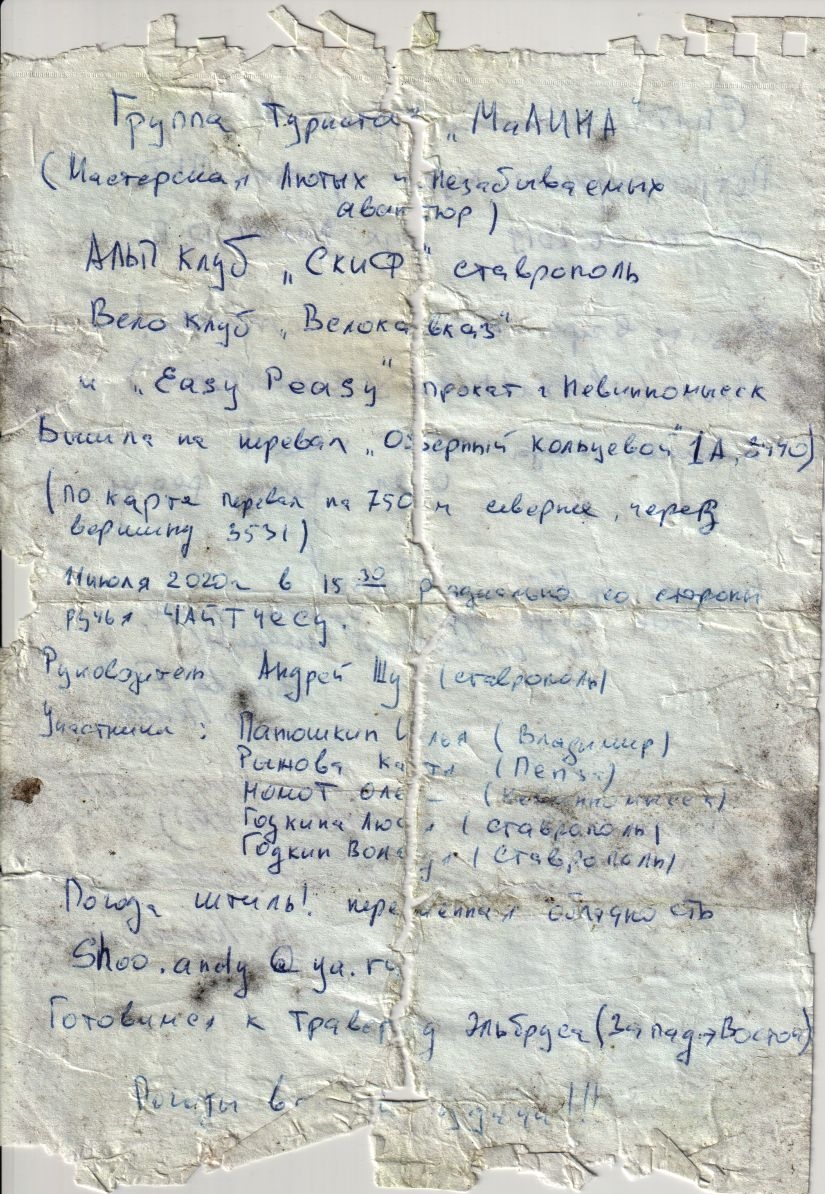 Группа Туриста „МАЛИНА"
(Мастерская Лютых и Незабываемых
авантюр)
АЛЬП клуб „СКИФ" ставрополь
Вело клуб „Велокавказ"
и „Easy Peasy" прокат г Невинномысск
Вышла на перевал „Озерный кольцевой" 1А, 3440)
(по карте перевал на 750 м севернее, через
вершину 3531)
11 июля 2020г в 15 30 радиально со стороны
ручья ЧАЙТЧЕСУ.
Руководитель Андрей Шу (ставрополь)
Участники: Патюшкин Илья (Владимир)
Рыжова Катя (Пенза)
(Невинномысск)
Годкина Люся (ставрополь)
Годкин Володя (Ставрополь)
Погода штиль! переменная облачность
Shoo.andy@ya.ru
Готовимся к Траверсу Эльбруса (Запад→Восток)
удачи!!!